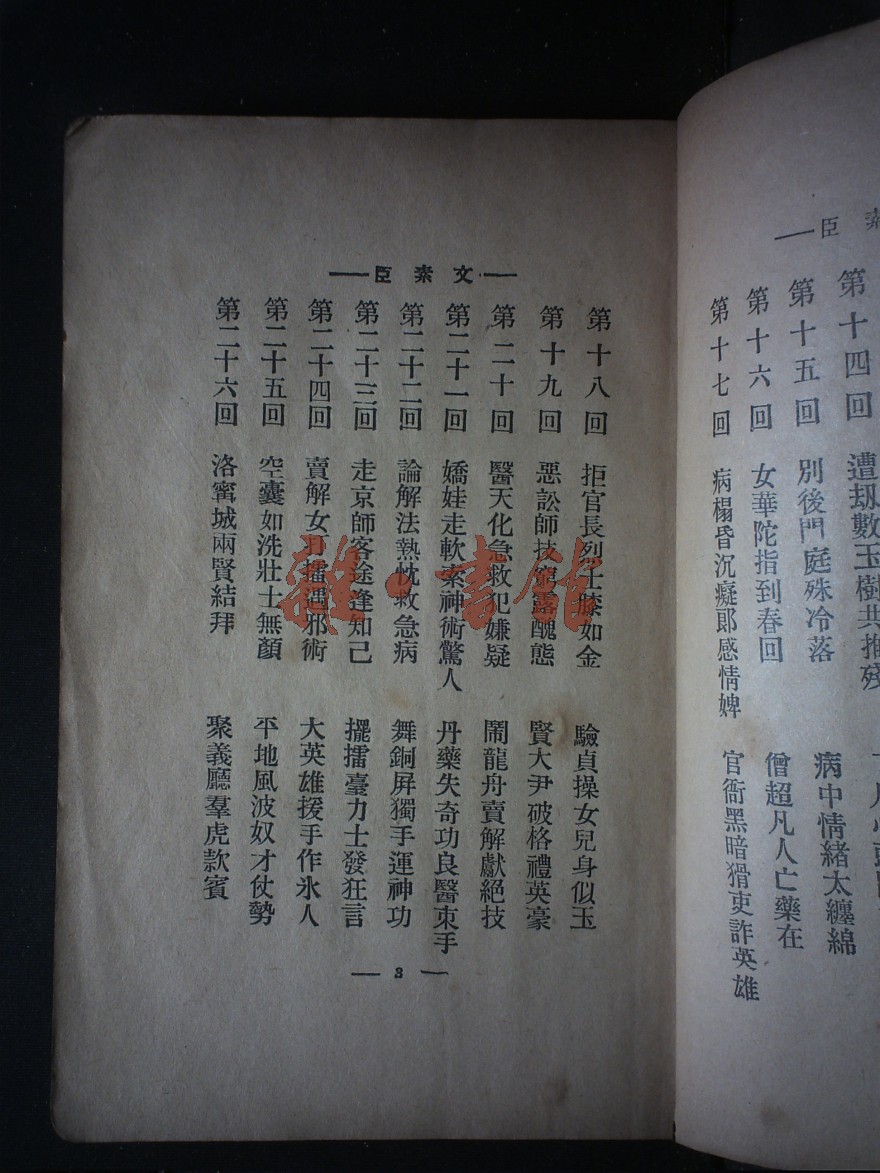 素臣
第十四回　遭刼數玉樹共摧殘
第十五回　別後門庭殊冷落　病中情緒太纏綿
第十六回　女華陀指到春回　僧超凡人亡藥在
第十七回　病榻昏沉癡郎感情婢　官衙黑暗猾吏詐英雄
文素臣
第十八回　拒官長烈士膝如金　驗貞操女兒身似玉
第十九回　惡訟師技窮露醜態　賢大尹破格禮英豪
第二十回　醫天化急救犯嫌疑　鬧龍舟賣解獻絕技
第二十一回　嬌娃走軟索神術驚人　丹藥失奇功良醫束手
第二十二回　論解法熱忱救急病　舞銅屏獨手運神功
第二十三回　走京師客途逢知己　擺擂臺力士發狂言
第二十四回　賣解女打擂遇邪術　大英雄援手作氷人
第二十五回　空囊如洗壯士無顏　平地風波奴才仗勢
第二十六回　洛寗城兩賢結拜　聚義廳羣虎款賓
3
雜·書館